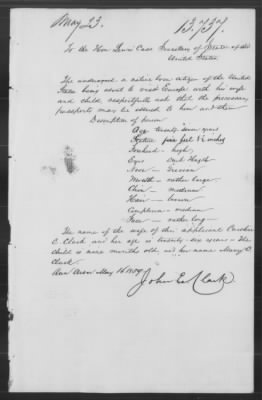 May 23.
13,737.
To the Hon Lewis Cass Secretary of State of the
United States
The undersigned a native born citizen of the United
States being about to visit Europe with his wife
and child respectfully ask that the necessary
passports may be issued to him and them
Description of person
Age twenty seven years
Stature five feet 8½ inches
Forehead - high
Eyes - dark
Nose - Grecian
Mouth - rather large
Chin - medium
Hair - brown
Complexion - medium
Face - rather long -
The name of the wife of the applicant Caroline
C. Clark and her age is twenty-six years - The
child is nine months old and her name Mary C.
Clark.
Ann Arbor May 16 1859
John E. Clark